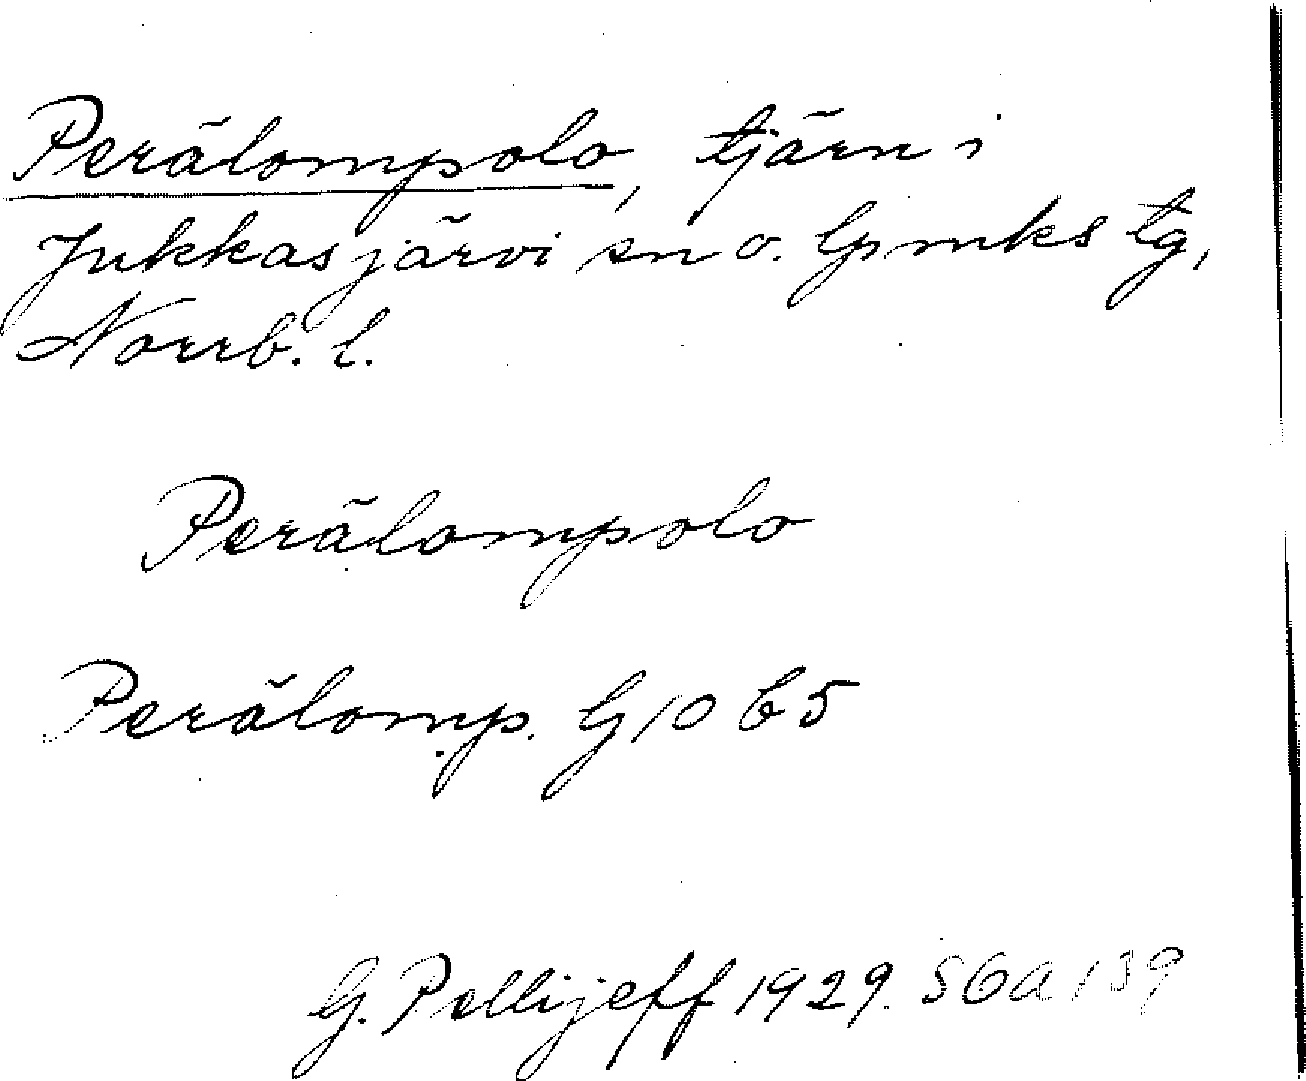 Perälompolo, tjärn i
Jukkasjärvi sn o. Gpmks tg,
Norrb. l.
Perälompolo
Perälomp. G 10 b5
G. Pellijeff 1929.